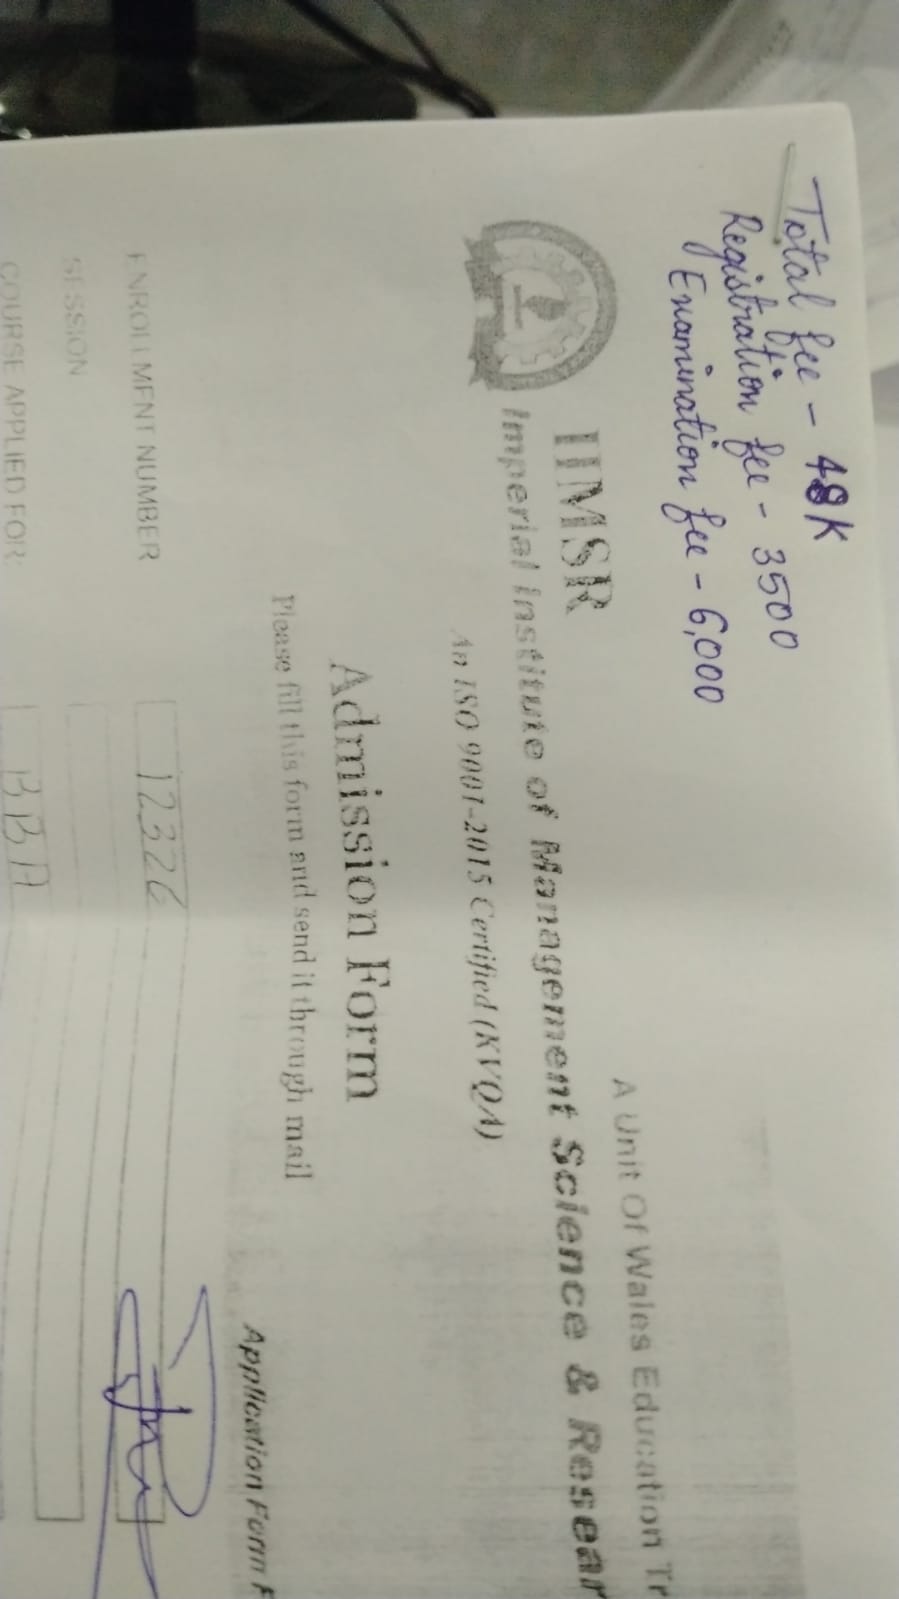 Total fee - 48K
Registration fee - 3500
Examination fee - 6,000
A Unit Of Wales Education Tr
IIMSR
Imperial Institute of Management Science & Resear
An ISO 9001-2015 Certified (KVQA)
Admission Form
Please fill this form and send it through mail
Application Form F
ENROLLMENT NUMBER 12326
SESSION
COURSE APPLIED FOR: BBA